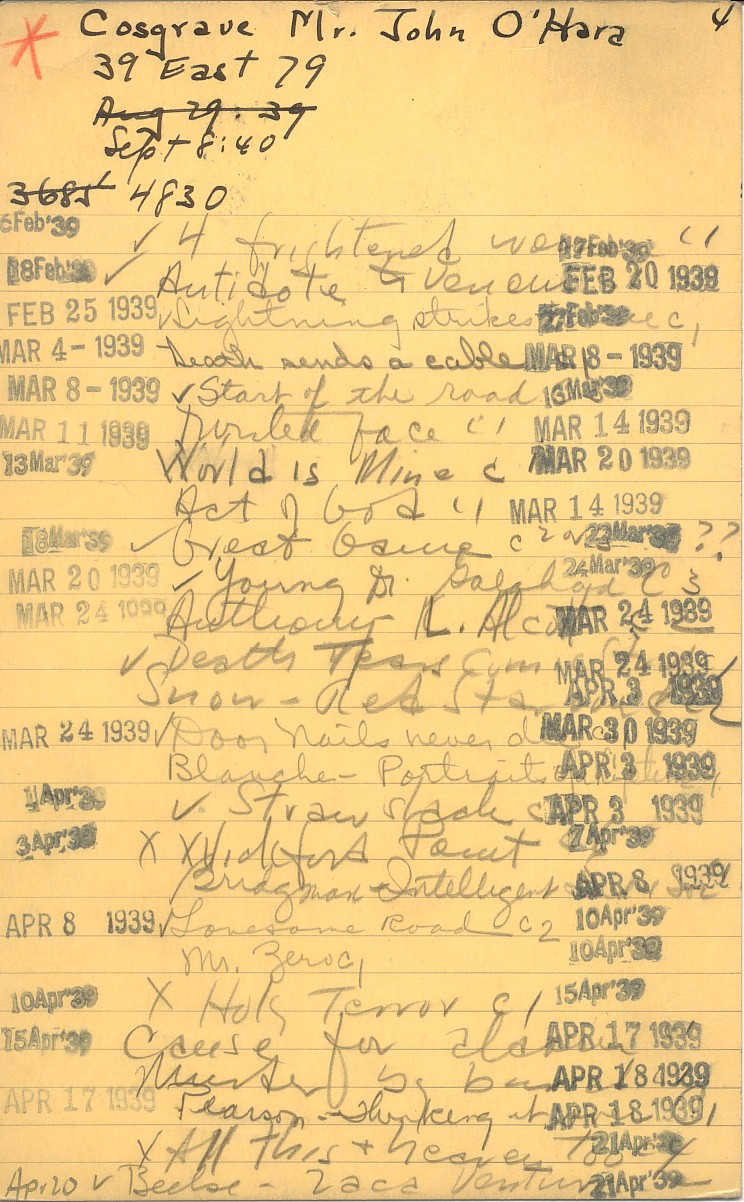 * Cosgrave Mr. John O'Hara 4
39 East 79
Aug 29.39
Sept 8:40
3685 4830
6Feb'39 ✓ 4 frightened 17Feb'39 c1
18Feb'39 ✓ Antidote to Venom FEB 20 1939
FEB 25 1939 ✓ Lightning strikes 27Feb'39 c1
MAR 4-1939 Death sends a cable MAR 8-1939
MAR 8-1939 ✓ Start of the road 16Mar'39
MAR 11 1939 face c1 MAR 14 1939
13Mar'39 World is Mine c MAR 20 1939
Act of God c1 MAR 14 1939
18Mar'39 ✓ Great Game c2 23Mar'39 ??
MAR 20 1939 ✓ Young Dr. Galahad c3 24Mar'39
MAR 24 1939 Anthony R. MAR 24 1939
✓ Death MAR 24 1939
Snow - Red Star APR 3 1939
MAR 24 1939 ✓ Door Nails never MAR 30 1939
Blanche - Portrait APR 3 1939
1Apr'39 ✓ Straw stack c APR 3 1939
3Apr'39 X X Wickford Point 7Apr'39
Bridgman - Intelligent APR 8 1939
APR 8 1939 ✓ Lonesome Road c2 10Apr'39
Mr. Zero c1 10Apr'39
10Apr'39 X Holy Terror c1 15Apr'39
15Apr'39 Cause for alarm APR 17 1939
Murder by APR 18 1939
APR 17 1939 Pearson - Thinking it APR 18 1939
X All This + heaven too 21Apr'39
Apr 20 ✓ Beebe - Zaca Venture 21Apr'39